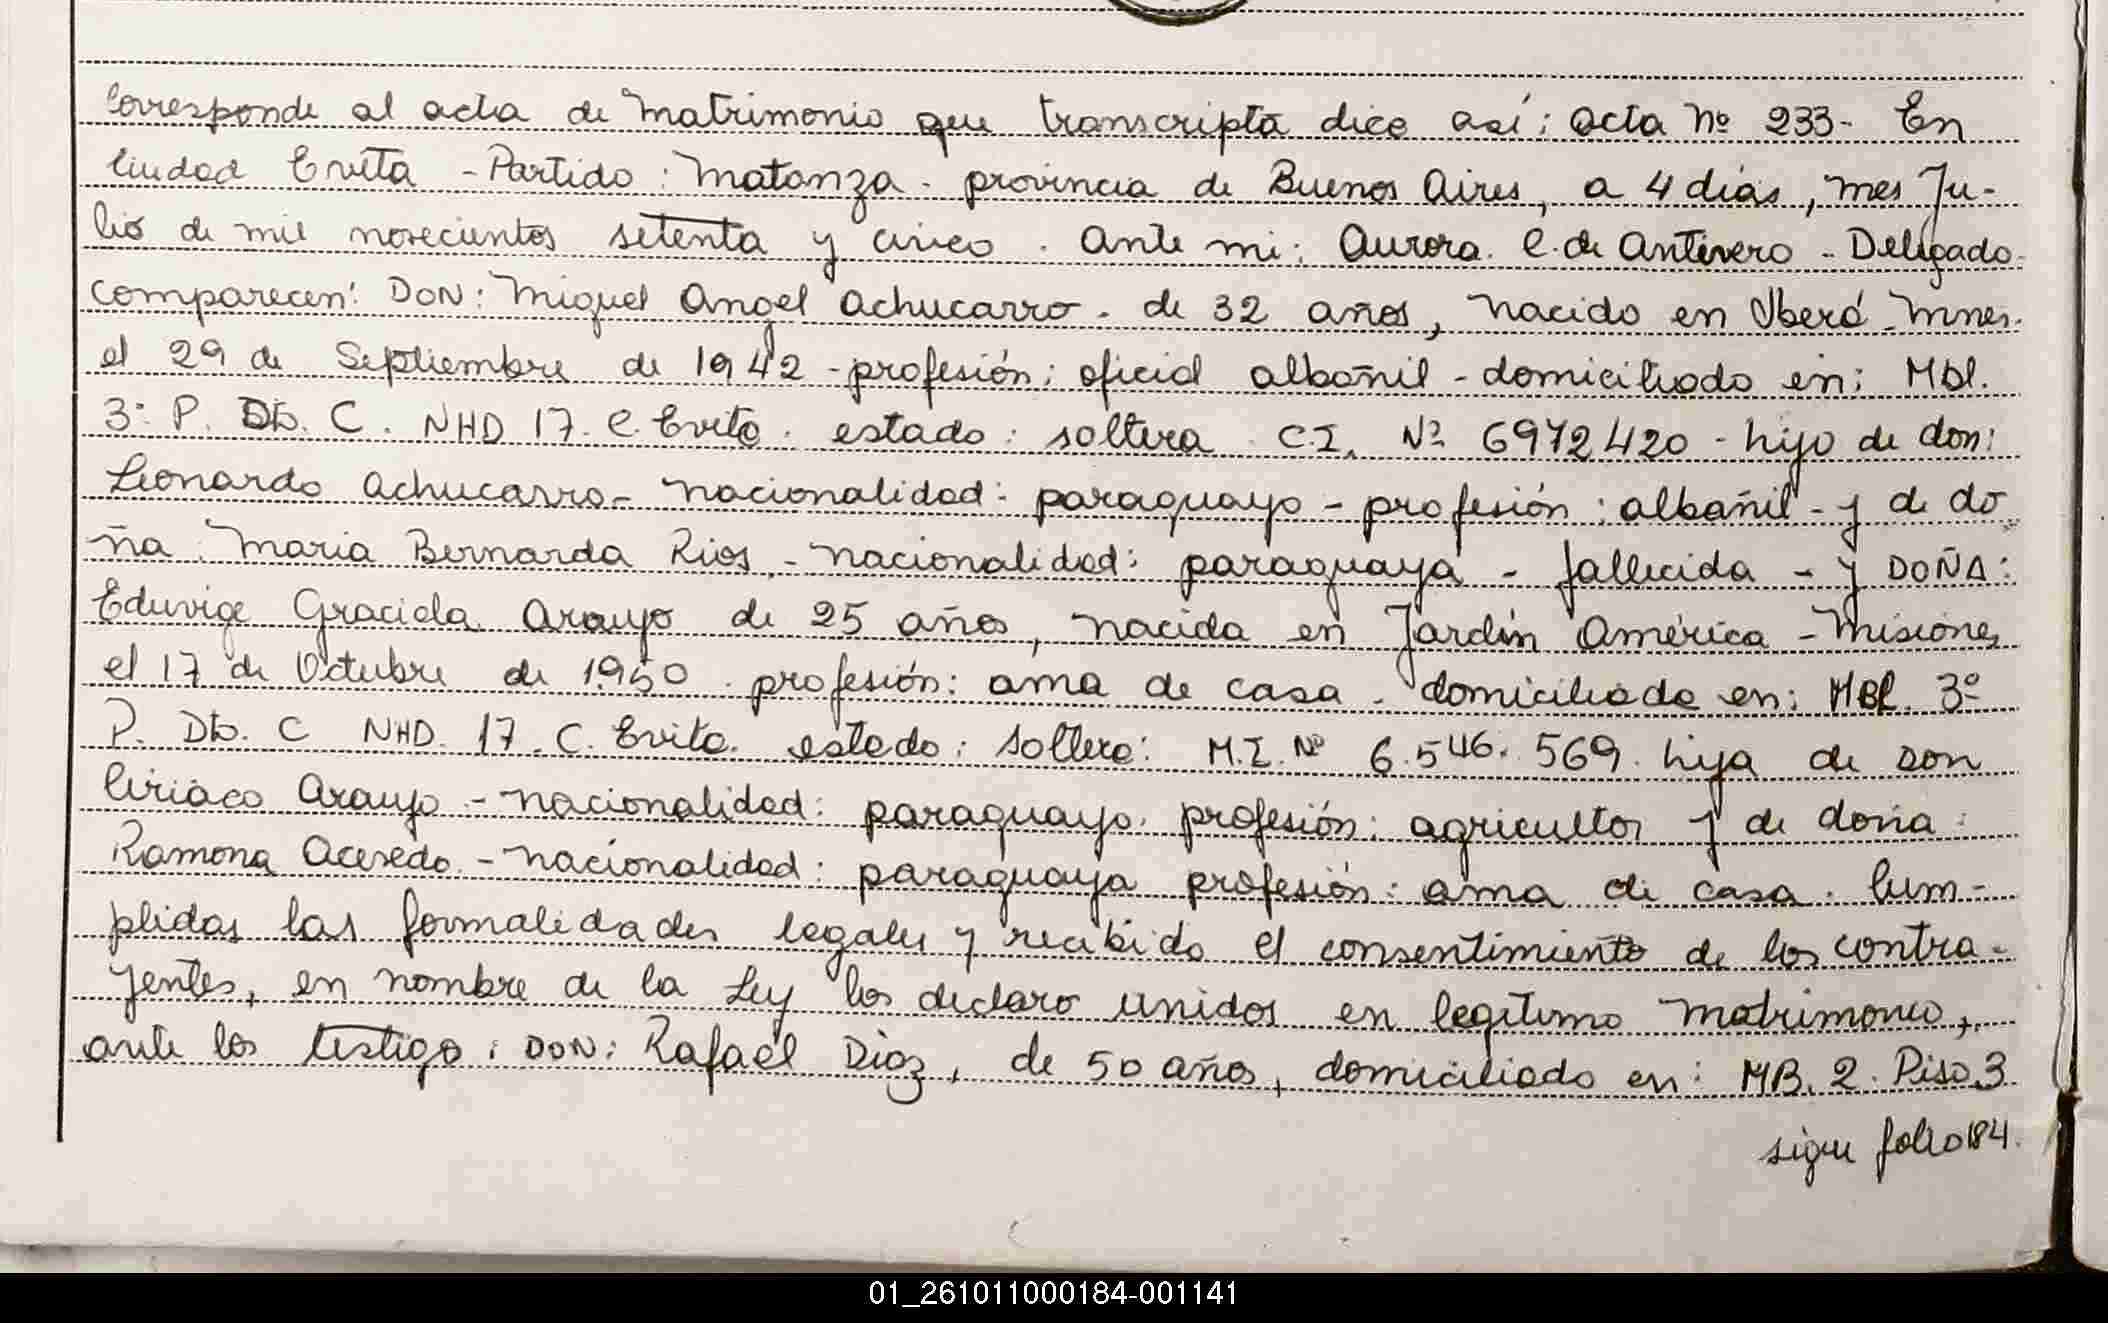 Corresponde al acta de Matrimonio que transcripta dice así: Acta Nº 233- En
Ciudad Evita - Partido: Matanza - provincia de Buenos Aires, a 4 días, mes Ju-
lio de mil novecientos setenta y cinco. Ante mi: Aurora. C. de Antivero - Delegado.
comparecen: DON: Miguel Angel Achucarro. de 32 años, nacido en Oberá - Mnes.
el 29 de Septiembre de 1942 - profesión: oficial albañil - domiciliado en: Mbl.
3: P. Dto. C. NHD 17. C. Evita. estado: soltera C.I. Nº 6972420 - hijo de don:
Leonardo Achucarro - nacionalidad: paraguayo - profesión: albañil - y de do
ña: Maria Bernarda Rios - nacionalidad: paraguaya - fallecida - y DOÑA:
Eduvige Graciela Araujo de 25 años, nacida en Jardín América - Misiones
el 17 de Octubre de 1950. profesión: ama de casa - domiciliada en: MBl. 3º
P. Dto. C NHD. 17. C. Evita. estado: soltera: M.I. Nº 6.546.569. hija de don
Ciriaco Araujo - nacionalidad: paraguayo. profesión: agricultor y de doña:
Ramona Acevedo - nacionalidad: paraguaya profesión: ama de casa. Cum-
plidas las formalidades legales y recibido el consentimiento de los contra-
yentes, en nombre de la Ley los declaro unidos en legítimo matrimonio,
ante los testigo: DON: Rafael Diaz, de 50 años, domiciliado en: MB. 2. Piso 3
sigue folio 184.
01_261011000184-001141